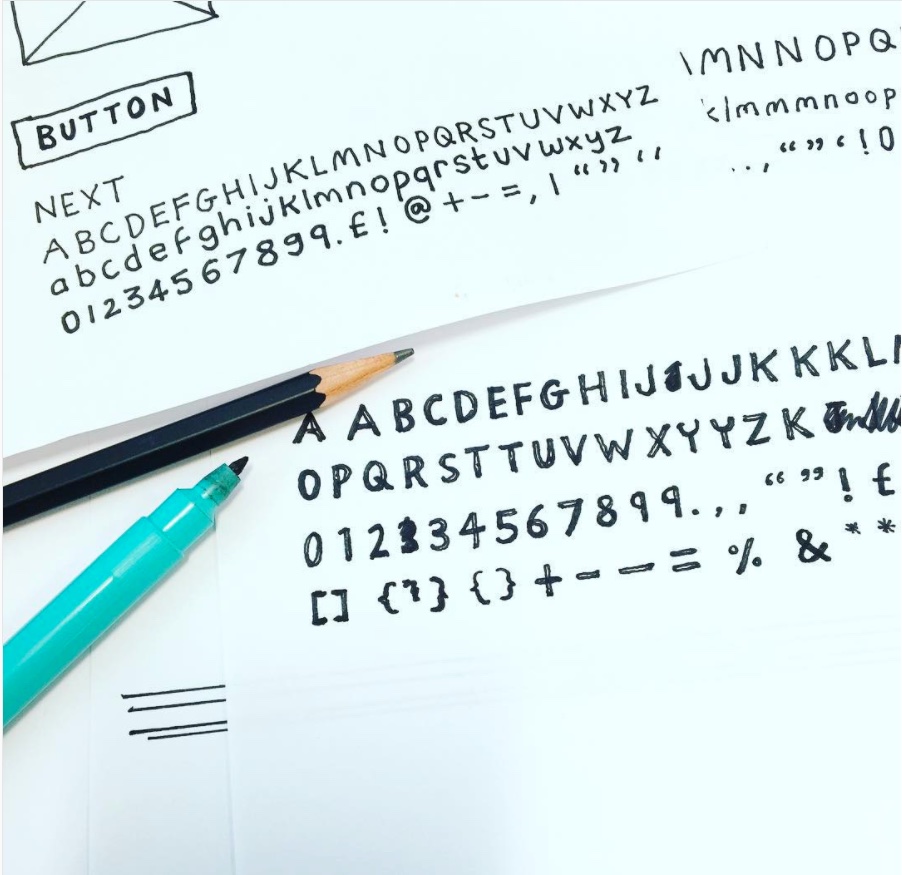 BUTTON
NEXT
ABCDEFGHIJKLMNOPQRSTUVWXYZ
abcdefghijklmnopqrstuvwxyz
01234567899.£!@+-=,|“”‘‘
\MNNOPQ
klmmmnoop
..,“”‘!0
A ABCDEFGHIJJJKKKL
OPQRSTTUVWXYYZK
0123345678999.,,“”!£
[] {?} {} +--= % & **